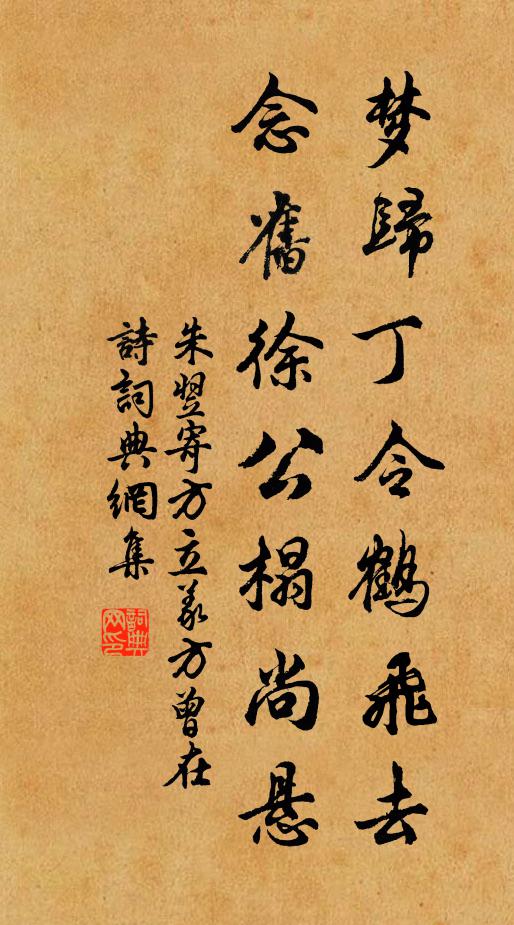 梦歸丁令鶴飛去
念舊徐公榻尚悬
朱翌寄方立義方曾在
詩詞典網集
詞典網印